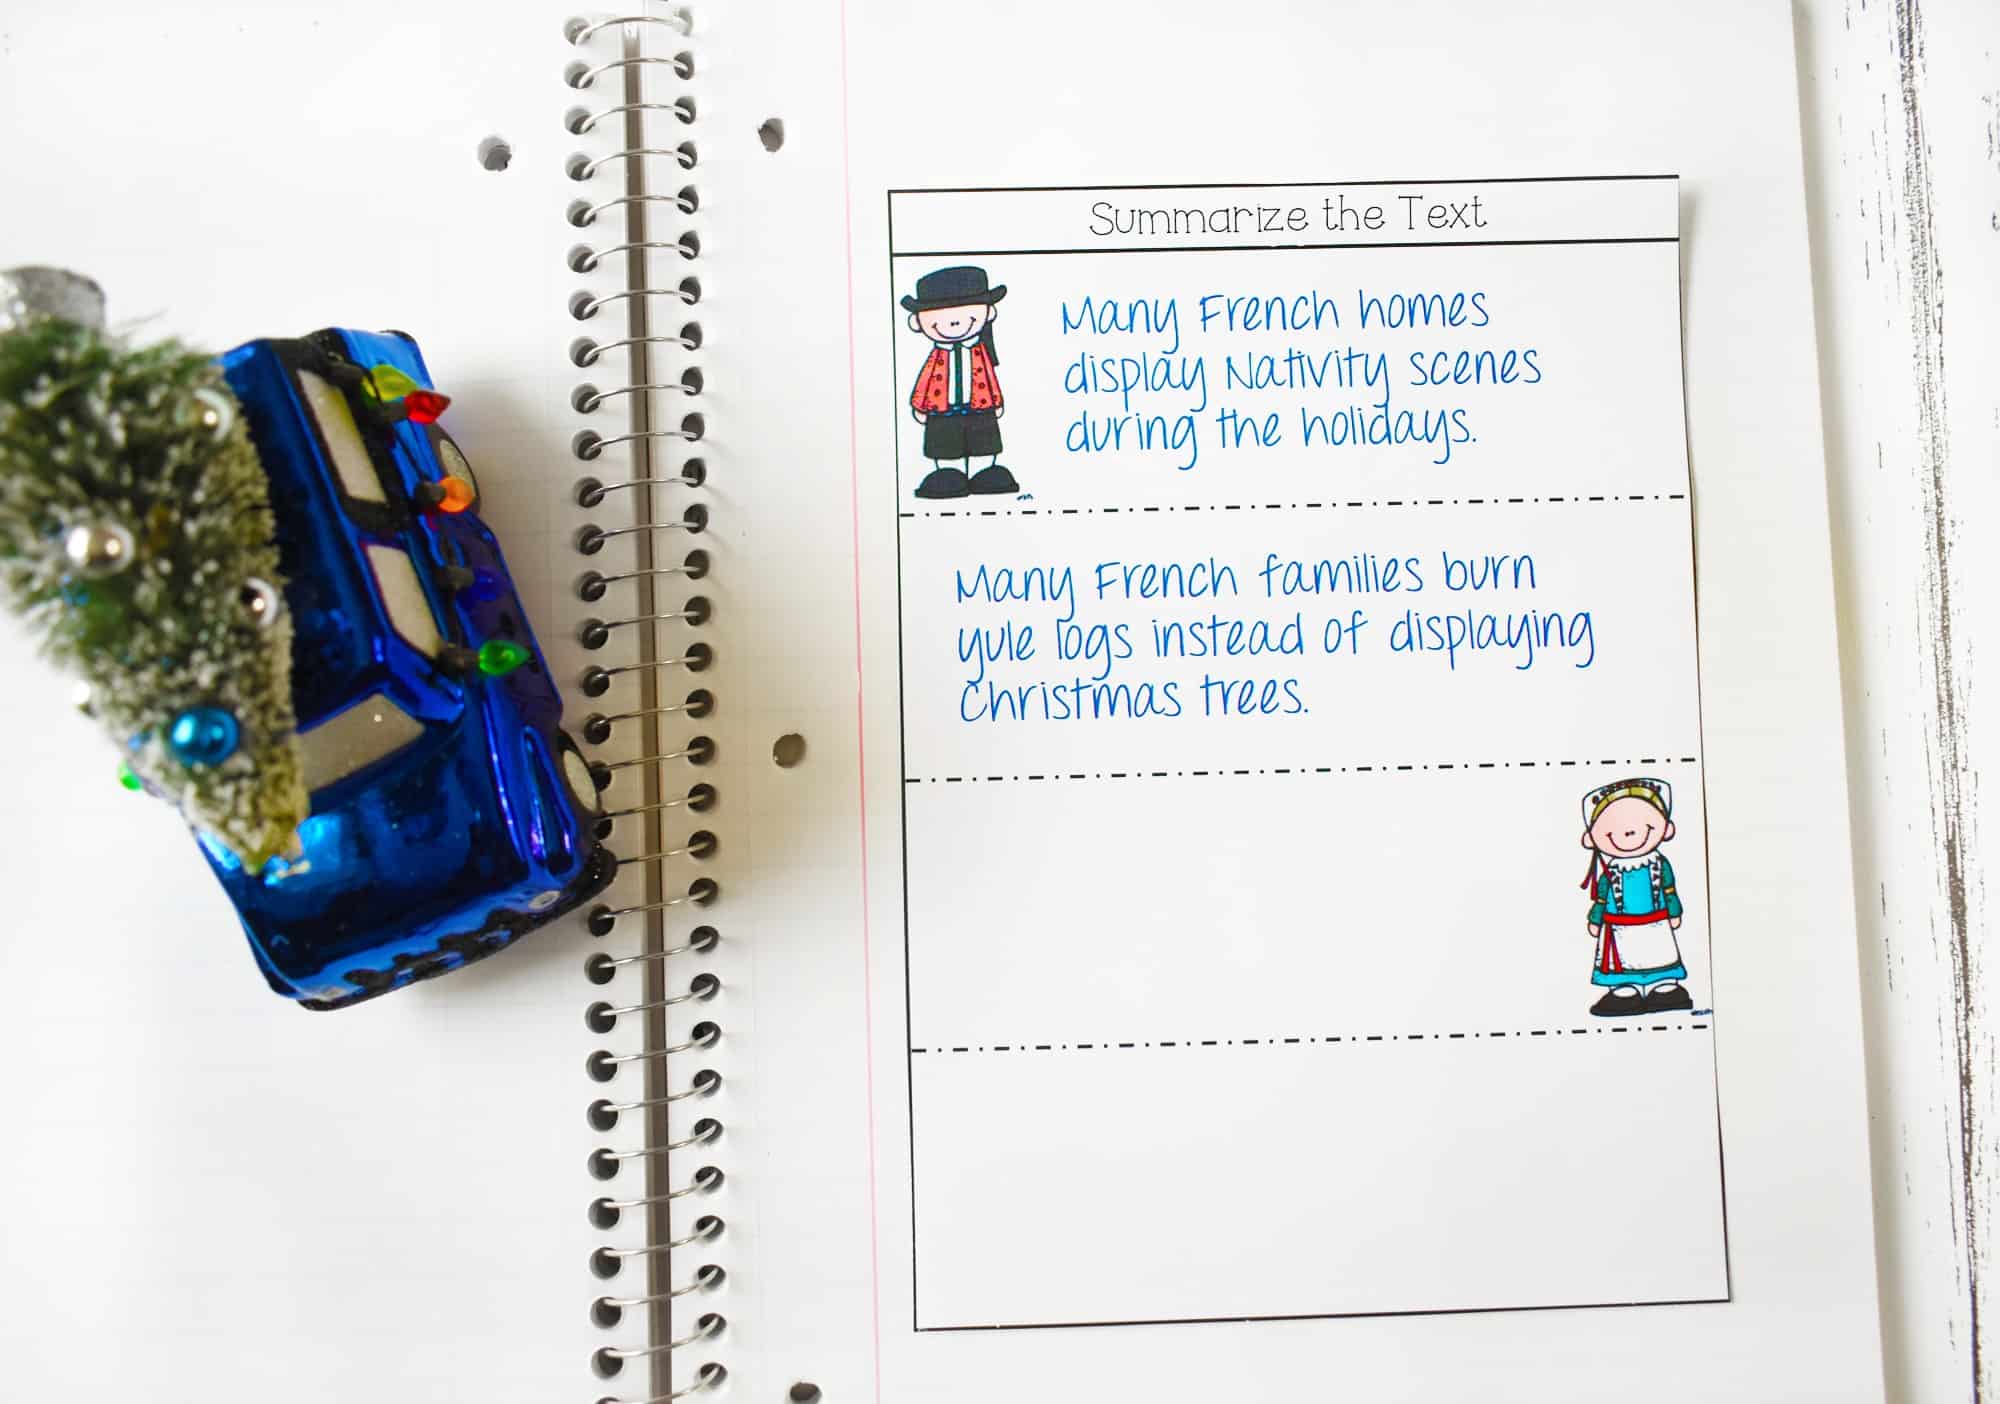 Summarize the Text
Many French homes
display Nativity scenes
during the holidays.
Many French families burn
yule logs instead of displaying
Christmas trees.